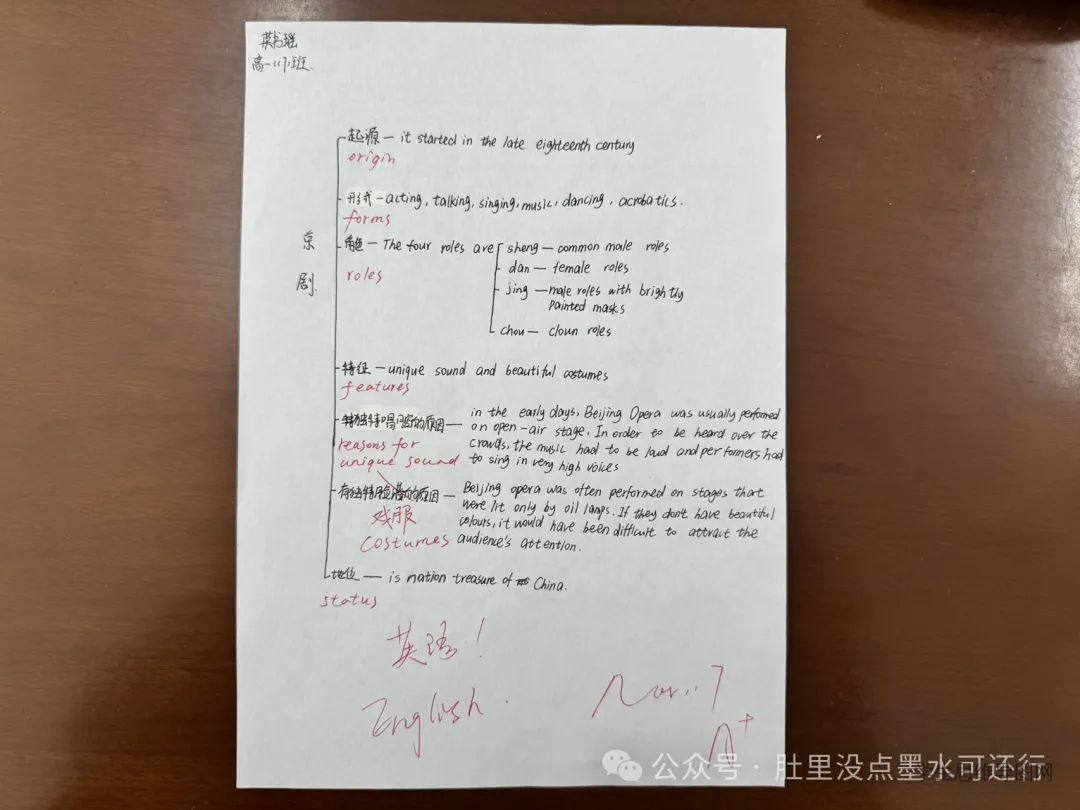 高一(17)班
京剧
起源 — it started in the late eighteenth century
origin
形式 — acting, talking, singing, music, dancing, acrobatics.
forms
角色 — The four roles are
roles
sheng — common male roles
dan — female roles
jing — male roles with brightly
painted masks
chou — cloun roles
特征 — unique sound and beautiful costumes
features
独特唱腔的原因 — in the early days, Beijing Opera was usually performed
on open-air stage, In order to be heard over the
crowds, the music had to be loud and performers had
to sing in very high voices
reasons for
unique sound
有独特的原因 — Beijing opera was often performed on stages that
were lit only by oil lamps. If they don't have beautiful
colours, it would have been difficult to attract the
audience's attention.
戏服
costumes
地位 — is nation treasure of China.
status
英语!
English.
Nov. 7
A+
公众号 · 肚里没点墨水可还行